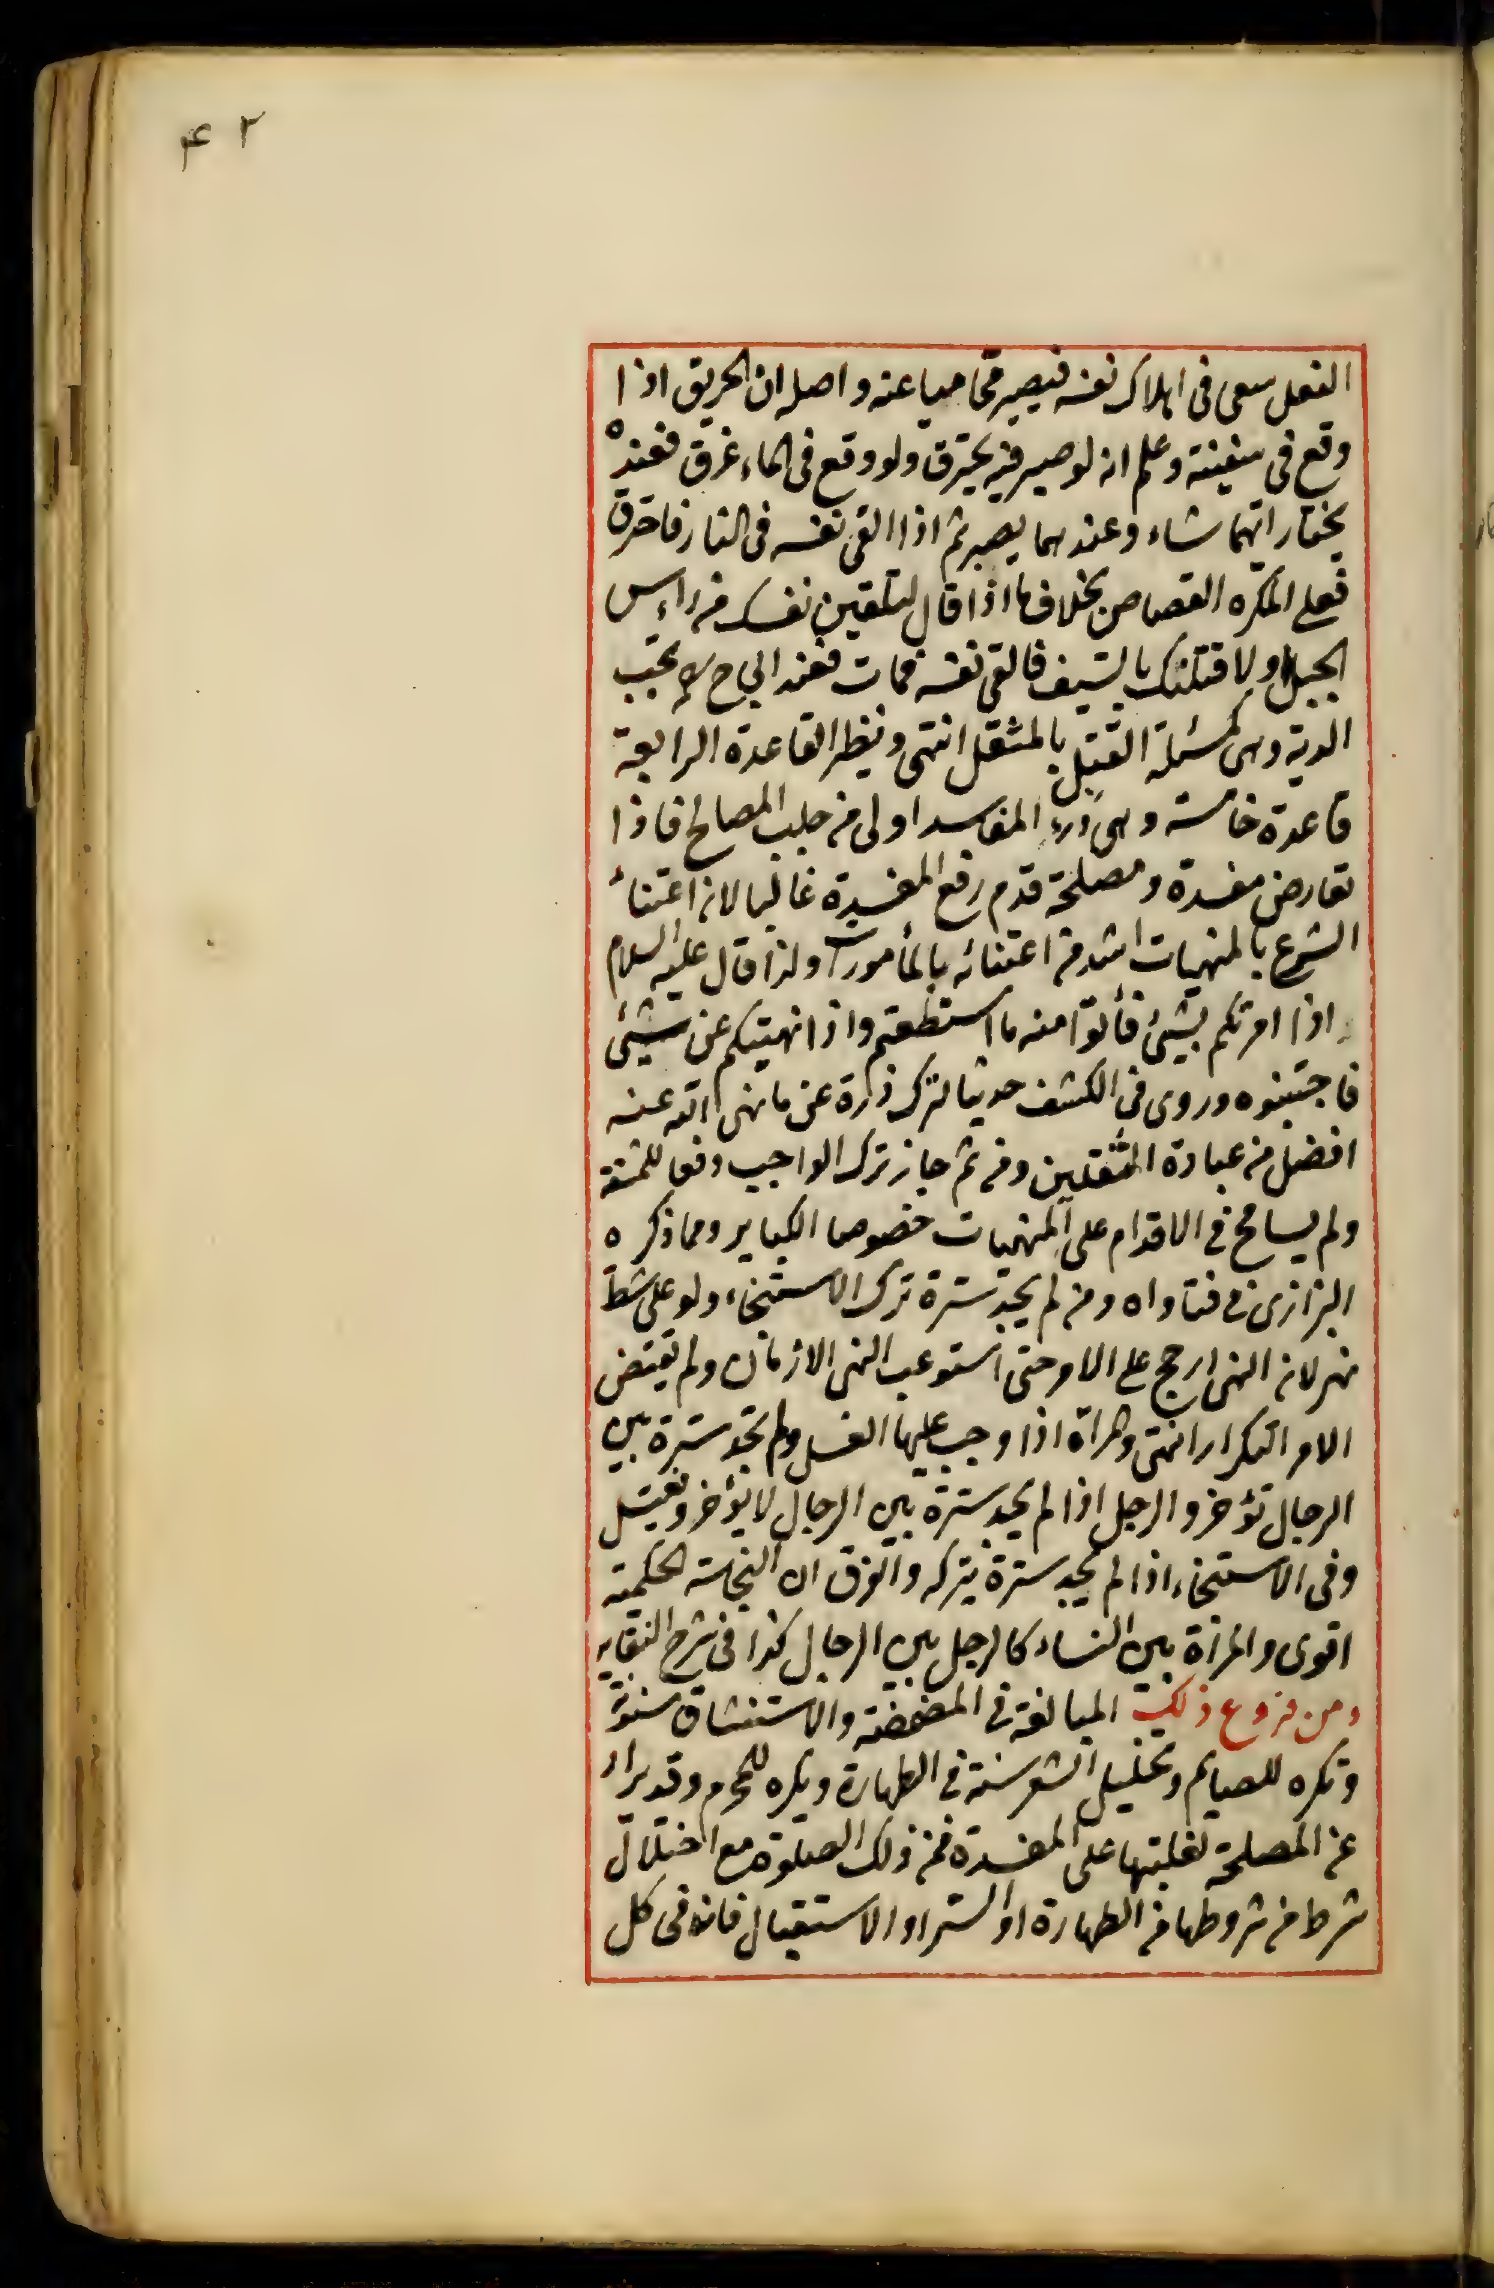 ۴۲
الفعل سعى فى اهلاك نفسه فيصير محاميا عنه واصله ان الحريق اذا
وقع فى سفينة وعلم انه لو صبر فيه يحترق ولو وقع فى الماء غرق فعنده
يختار ايهما شاء وعندهما يصبر ثم اذا القى نفسه فى النار فاحترق
فعلى المكره القصاص بخلاف ما اذا قال لتلقين نفسك من راءس
الجبل او لاقتلنك بالسيف فالقى نفسه فمات فعند ابي ح لا يجب
الدية وهى كمسئلة القتل بالمثقل انتهى ونظير القاعدة الرابعة
قاعدة خامسة وهى درء المفاسد اولى من جلب المصالح فاذا
تعارض مفسدة ومصلحة قدم رفع المفسدة غالبا لان اعتناء
الشرع بالمنهيات اشد من اعتنائه بالمأمورات ولذا قال عليه السلام
اذا امرتكم بشيئ فأتوا منه ما استطعتم واذا نهيتكم عن شيئ
فاجتنبوه وروى فى الكشف حديثا لترك ذرة عن ما نهى الله عنه
افضل من عبادة الثقلين ومن ثم جاز ترك الواجب دفعا للمشقة
ولم يسامح فى الاقدام على المنهيات خصوصا الكباير ومما ذكره
البزازى فى فتاواه ومن لم يجد سترة ترك الاستنجاء ولو على شط
نهر لانه النهى ارجح على الامر حتى استوعب النهى الازمان ولم يقتض
الامر التكرار انتهى والمرأة اذا وجب عليها الغسل ولم تجد سترة بين
الرجال تؤخر والرجل اذا لم يجد سترة بين الرجال لا يؤخر ويغتسل
وفى الاستنجاء اذا لم يجد سترة يتركه والفرق ان النجاسة الحكمية
اقوى والمرأة بين النساء كالرجل بين الرجال كذا فى شرح النقاية
ومن فروع ذلك المبالغة فى المضمضة والاستنشاق سنة
وتكره للصايم وتخليل الشعر سنة فى الطهارة ويكره للمحرم وقد يراد
عن المصلحة لغلبتها على المفسدة فمن ذلك الصلوة مع اختلال
شرط من شروطها من الطهارة او الستر او الاستقبال فان فى كل